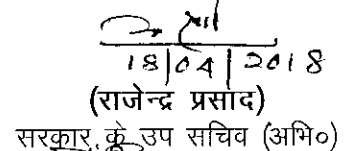 18/04/2018
(राजेन्द्र प्रसाद)
सरकार के उप सचिव (अभि०)